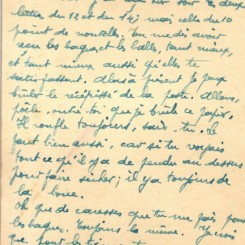 lettre du 12 et du 14, mais celle du 10
point de nouvelles. Tu me dis avoir
reçu les bagues et les balles, tant mieux,
et tant mieux aussi qu'elles te
satisfassent. Alors à présent je peux
brûler le récipissé de la poste. Allons,
poêle, ouvre-toi que je brûle ce papier.
Il ronfle toujours, sais-tu, le
fait bien aussi, car si tu voyais
tout ce qu'il y a de pendu au dessus
pour faire sécher; il y a toujours de
la boue.
Oh que de caresses que tu me fais pour
les bagues. Toujours la même.
que